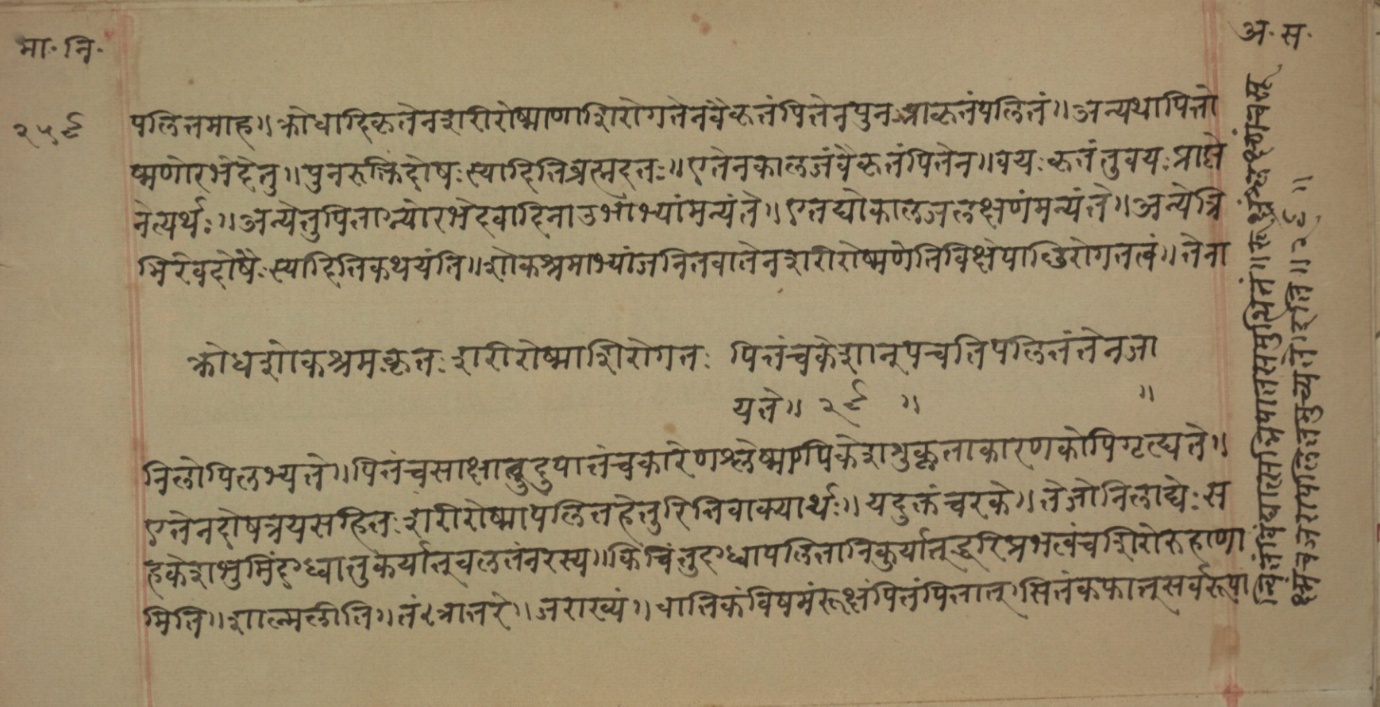 मा॰ नि॰
अ॰ स॰
२५९
पलितमाह॥ क्रोधादिकृतेनशरीरोष्माणाशिरोगतेनवैकृतंपित्तेनपुनःप्राकृतंपलितं॥ अन्यथापित्तो
ष्मणोरभेदेतु॥ पुनरुक्तिदोषःस्यादिति ॥ एतेनकालजंवैकृतंपित्तेन॥ वयःकृतंतुवयःप्राप्ते
नेत्यर्थः॥ अन्येतुपित्ताग्न्योरभेदवादिनाउभाभ्यांमन्यंते॥ एतद्योकालजलक्षणंमन्यंते॥ अन्येत्रि
भिरेवदोषैःस्यादितिकथयंति॥ शोकश्रमाभ्यांजनितवातेनशरीरोष्मणेतिविक्षेपाछिरोगतत्वं॥ तेना
क्रोधशोकश्रमकृतः शरीरोष्माशिरोगतः पित्तंचकेशान्पचतिपलितंतेनजा
यते॥ २९ ॥ ॥
निलोपिलभ्यते॥ पित्तंचसाक्षात् चकारेणश्लेष्मापिकेशशुक्लताकारणकोपिगृत्द्यते॥
एतेनदोषत्रयसहितः शरीरोष्मापलितहेतुरितिवाक्यार्थः॥ यदुक्तंचरके॥ तेजोनिलाद्यैः स
हकेशभुमिंदग्ध्वातुकुर्यात् नरस्य॥ किंचित्तुदग्ध्वापलितानिकुर्यात् हरिप्रभत्वंचशिरोरुहाणा
मिति॥ शाल्मलीति॥ तंत्रातरे॥ जराख्यं॥ वातिकंविषमंरूक्षंपित्तंपितात्॥ सितंकफात् सर्वरूपा
न्वितंविद्यात्सन्निपातसमुत्थितं॥
क्ष्मंचजरापलितमुच्यते इति॥ २९॥